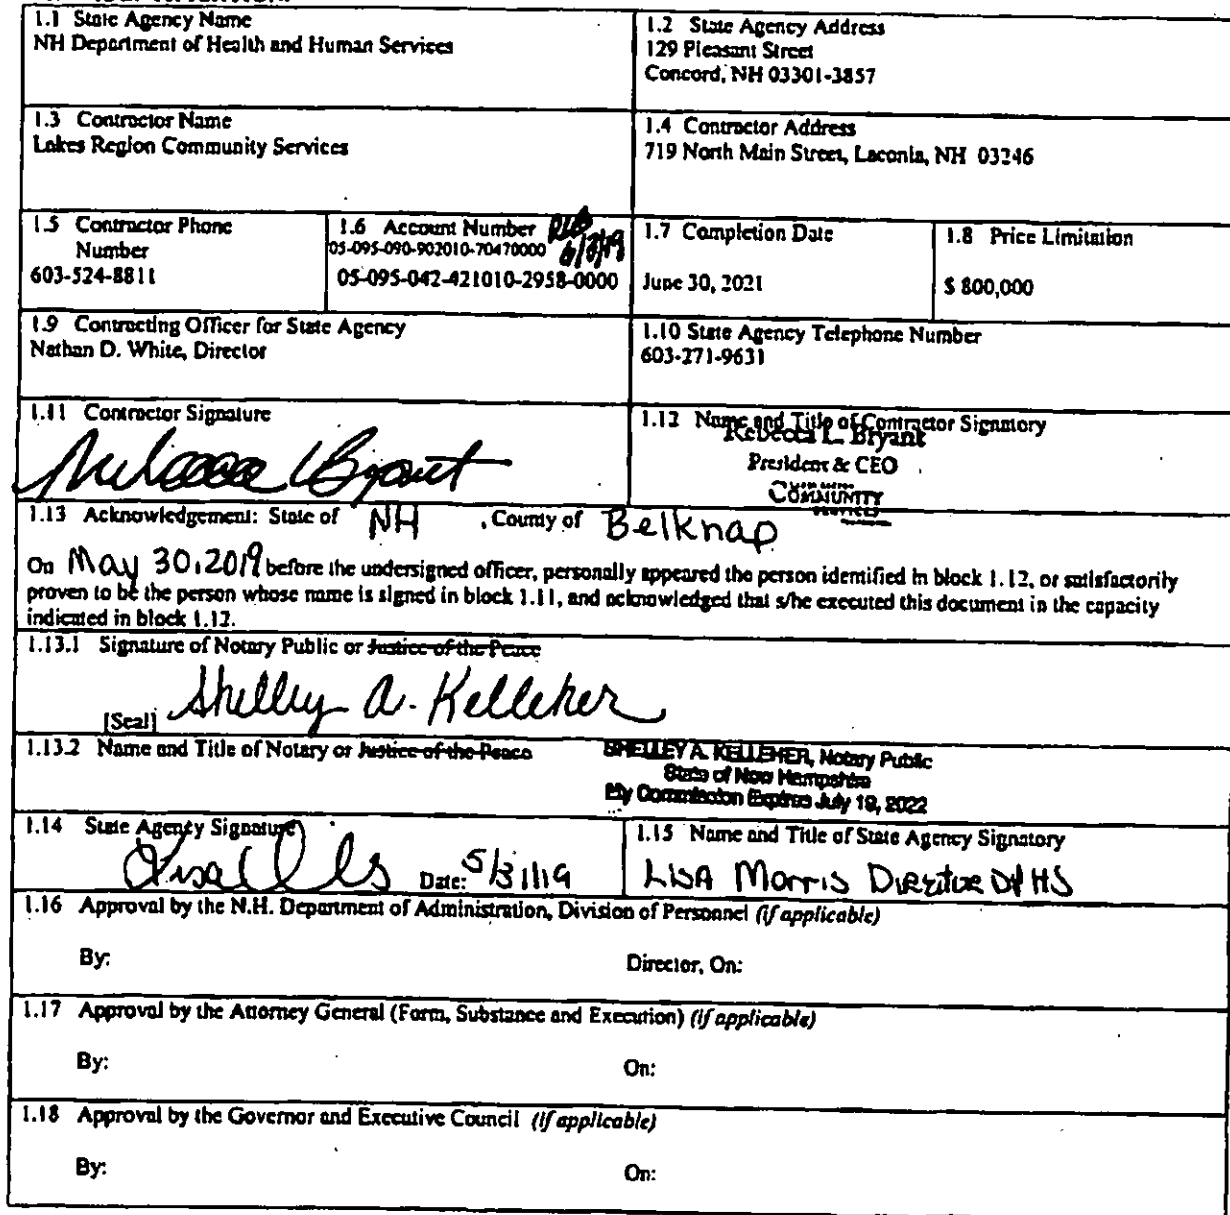 1.1 State Agency Name
NH Department of Health and Human Services
1.2 State Agency Address
129 Pleasant Street
Concord, NH 03301-3857
1.3 Contractor Name
Lakes Region Community Services
1.4 Contractor Address
719 North Main Street, Laconia, NH 03246
1.5 Contractor Phone
Number
603-524-8811
1.6 Account Number
05-095-090-902010-70470000
05-095-042-421010-2958-0000
1.7 Completion Date
June 30, 2021
1.8 Price Limitation
$ 800,000
1.9 Contracting Officer for State Agency
Nathan D. White, Director
1.10 State Agency Telephone Number
603-271-9631
1.11 Contractor Signature
1.12 Name and Title of Contractor Signatory
Rebecca L. Bryant
President & CEO
COMMUNITY
SERVICES
1.13 Acknowledgement: State of NH , County of Belknap
On May 30, 2019 before the undersigned officer, personally appeared the person identified in block 1.12, or satisfactorily
proven to be the person whose name is signed in block 1.11, and acknowledged that s/he executed this document in the capacity
indicated in block 1.12.
1.13.1 Signature of Notary Public or Justice of the Peace
Shelley A. Kelleher
[Seal]
1.13.2 Name and Title of Notary or Justice of the Peace
SHELLEY A. KELLEHER, Notary Public
State of New Hampshire
My Commission Expires July 19, 2022
1.14 State Agency Signature
Date: 5/31/19
1.15 Name and Title of State Agency Signatory
LISA Morris Director DPHS
1.16 Approval by the N.H. Department of Administration, Division of Personnel (if applicable)
By:
Director, On:
1.17 Approval by the Attorney General (Form, Substance and Execution) (if applicable)
By:
On:
1.18 Approval by the Governor and Executive Council (if applicable)
By:
On: